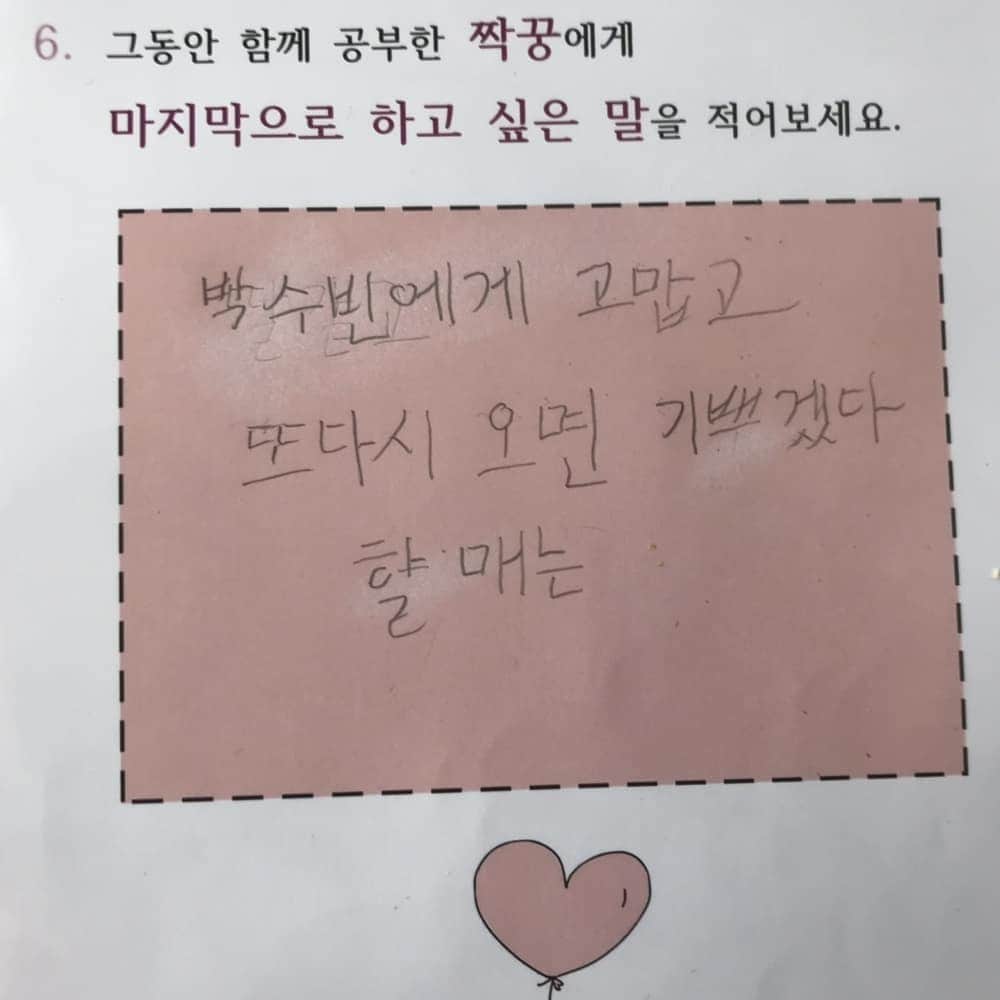 6. 그동안 함께 공부한 짝꿍에게
마지막으로 하고 싶은 말을 적어보세요.
박수빈에게 고맙고
또다시 오면 기쁘겠다
할매는